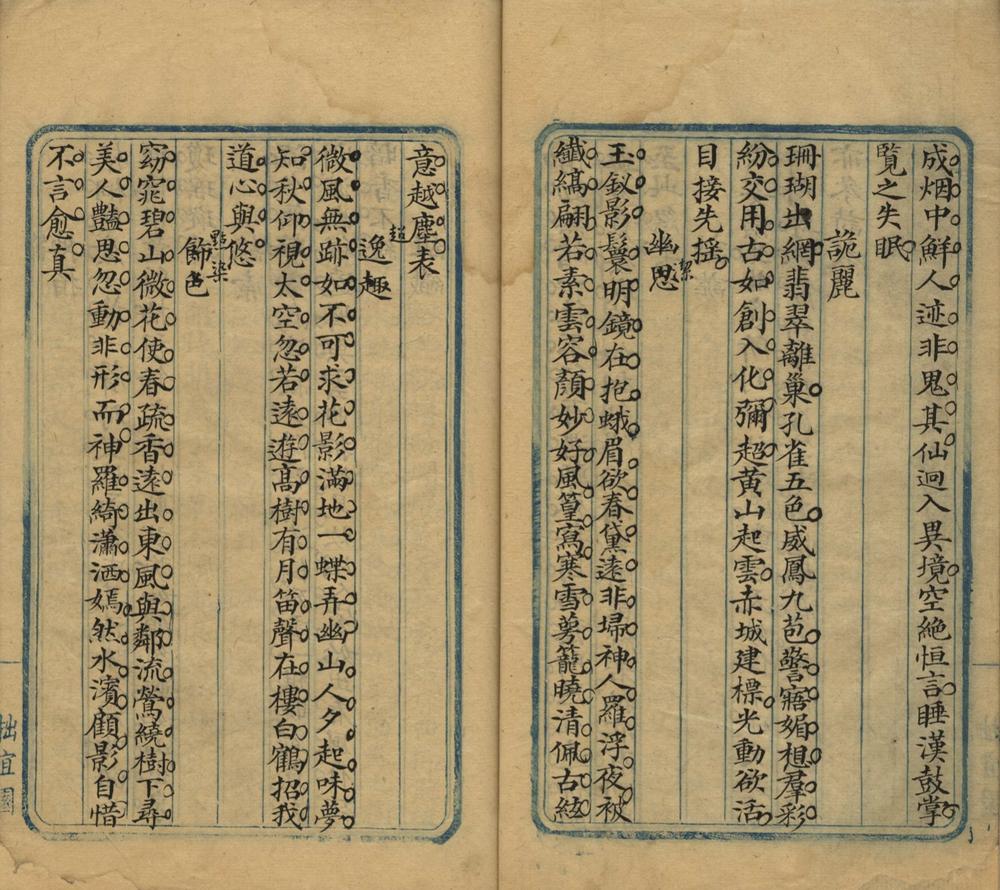 成烟中鮮人迹非鬼其仙迴入異境空絶恒言睡漢鼓掌
覧之失眠
詭麗
珊瑚出網翡翠離巢孔雀五色威鳳九苞警寤媚想羣彩
紛交用古如創入化彌超黃山起雲赤城建標光動欲活
目接先摇
幽思
潔
玉釵影鬟明鏡在抱蛾眉欲春黛遠非埽神人羅浮夜被
纖縞翩若素雲容顏妙好風篁寫寒雪夢籠曉清佩古絃
意越塵表
超
逸趣
微風無跡如不可求花影滿地一蝶弄幽山人夕起味夢
知秋仰視太空忽若遠遊高樹有月笛聲在樓白鶴招我
道心與悠
點染
飾色
窈窕碧山微花使春疏香遠出東風與鄰流鶯繞樹下尋
美人豔思忽動非形而神羅綺瀟洒嫣然水濱顧影自惜
不言愈真
拙宜園